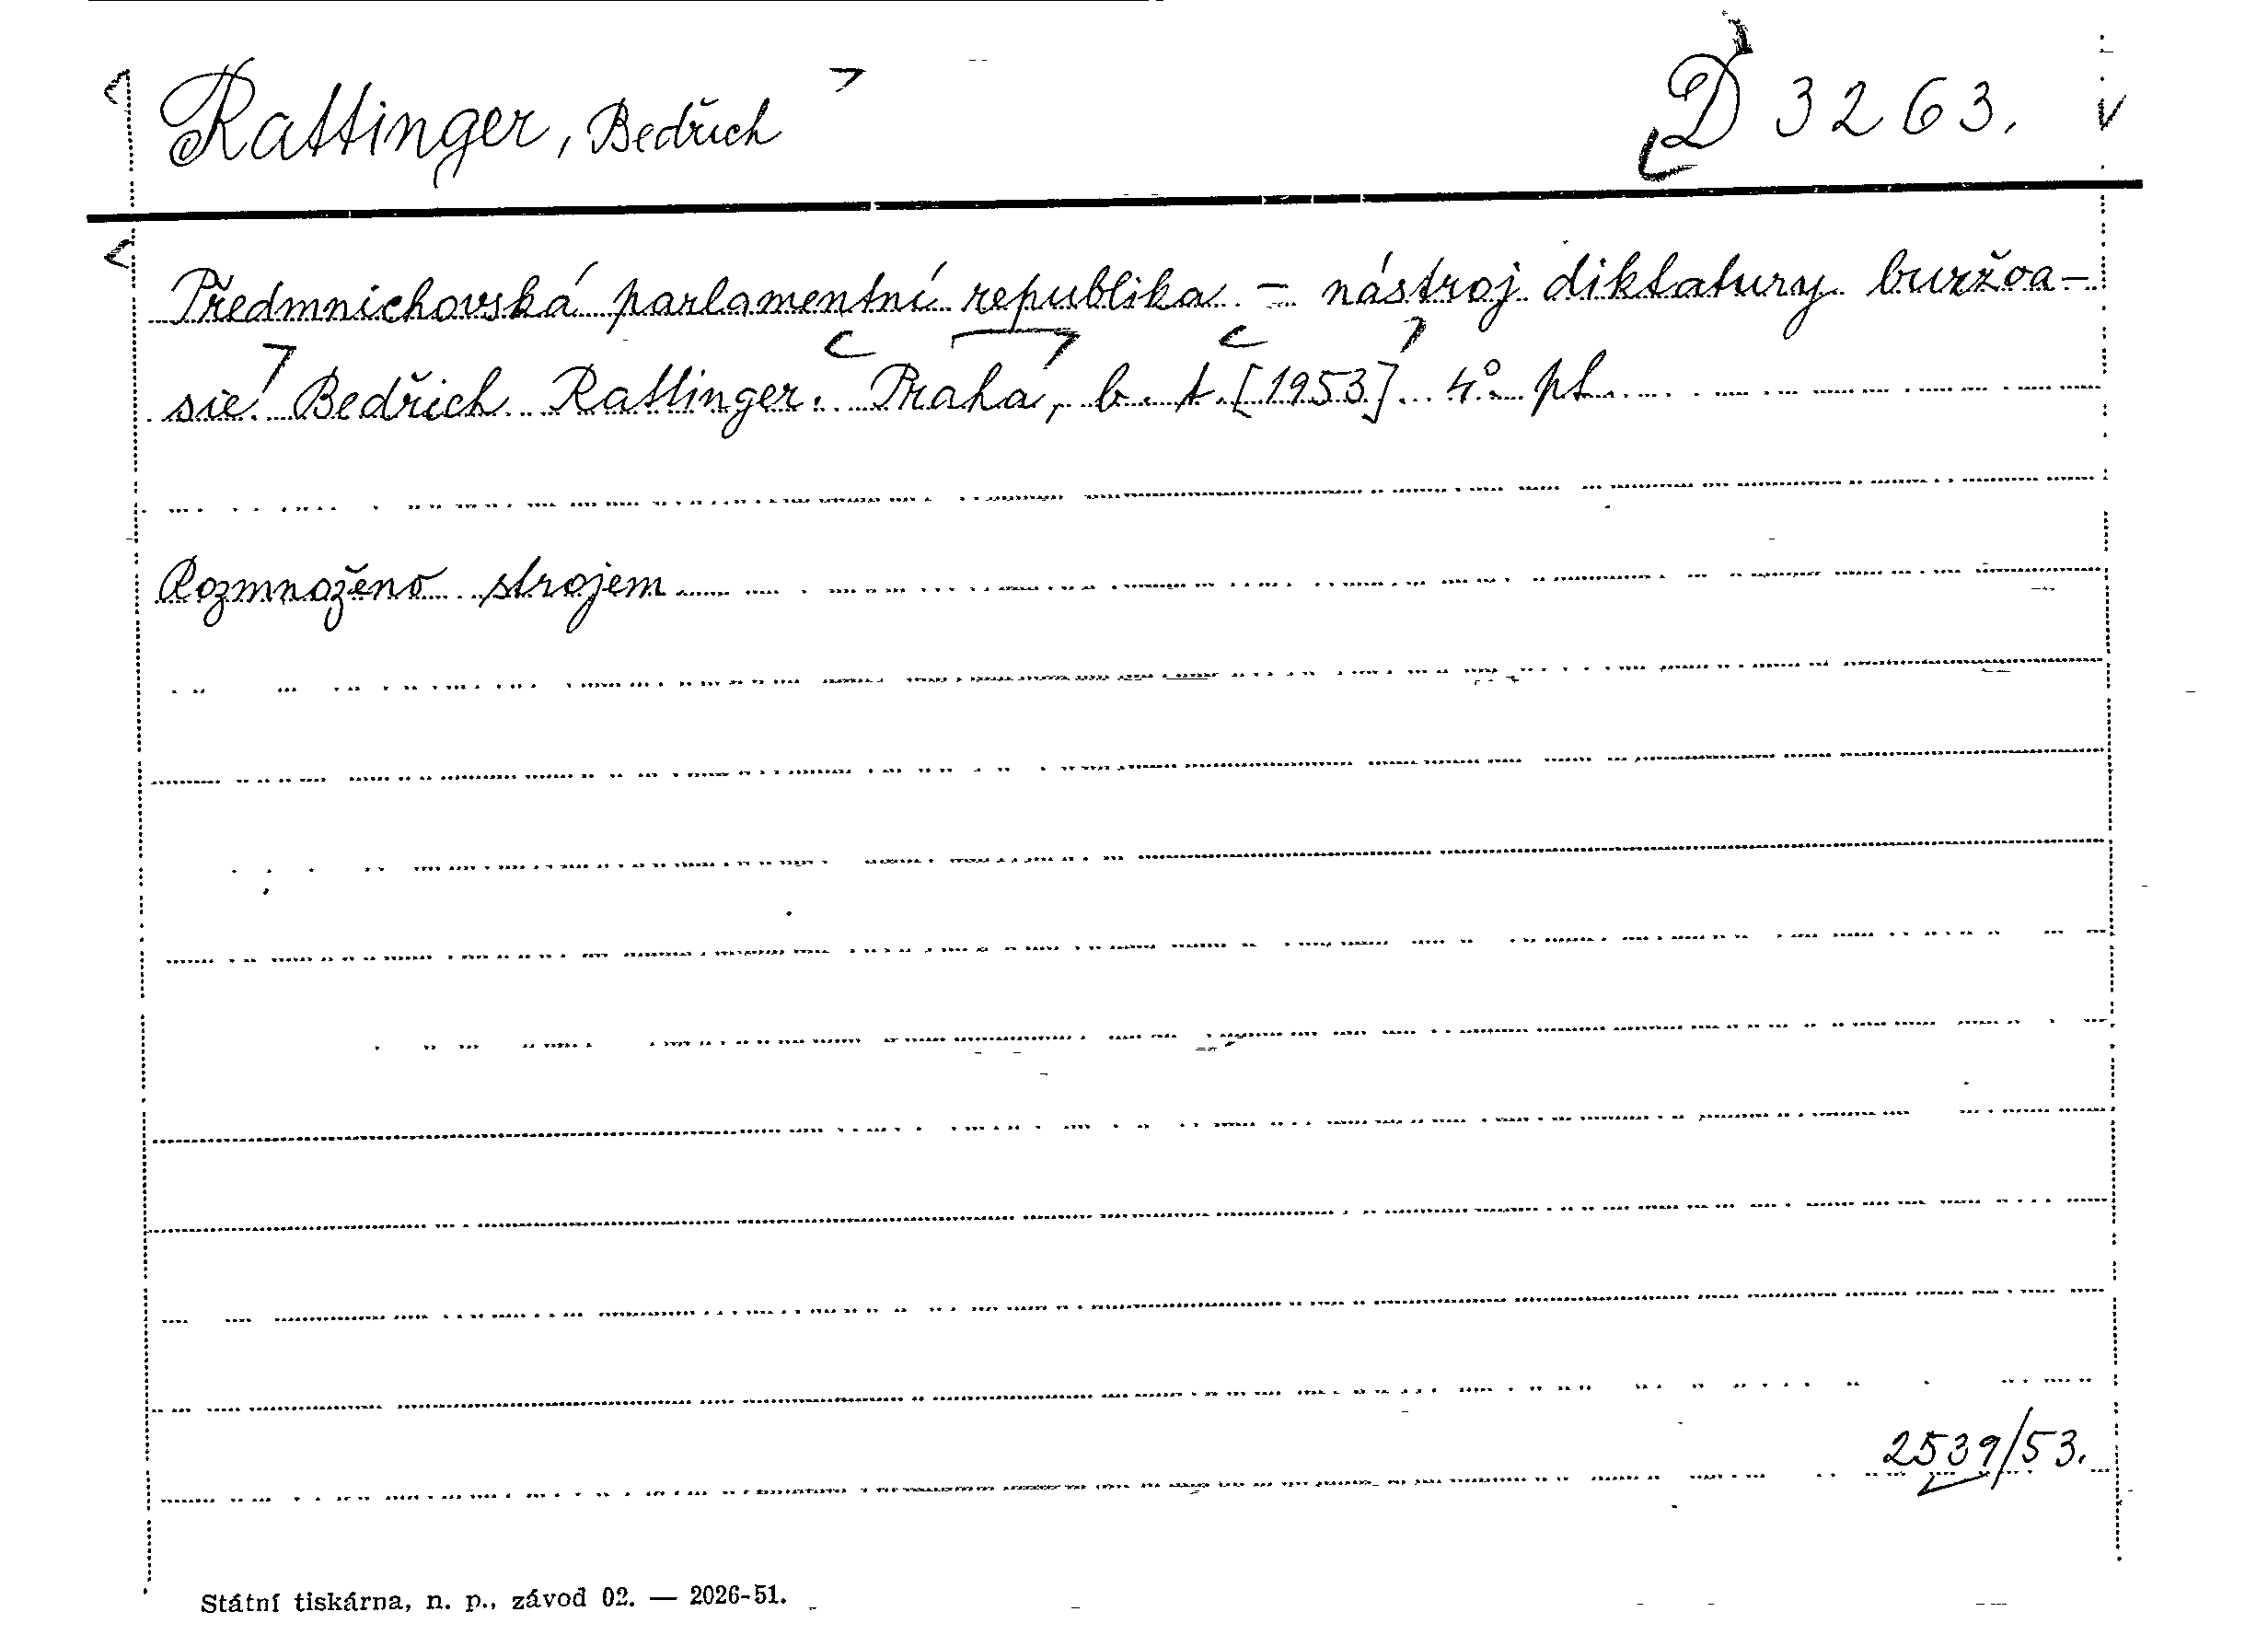 Rattinger, Bedřich D 3263.
Předmnichovská parlamentní republika - nástroj diktatury buržoa-
sie. Bedřich Rattinger. Praha, b. t. [1953]. 4° pl.
Rozmnoženo strojem
2539/53.
Státní tiskárna, n. p., závod 02. — 2026-51.